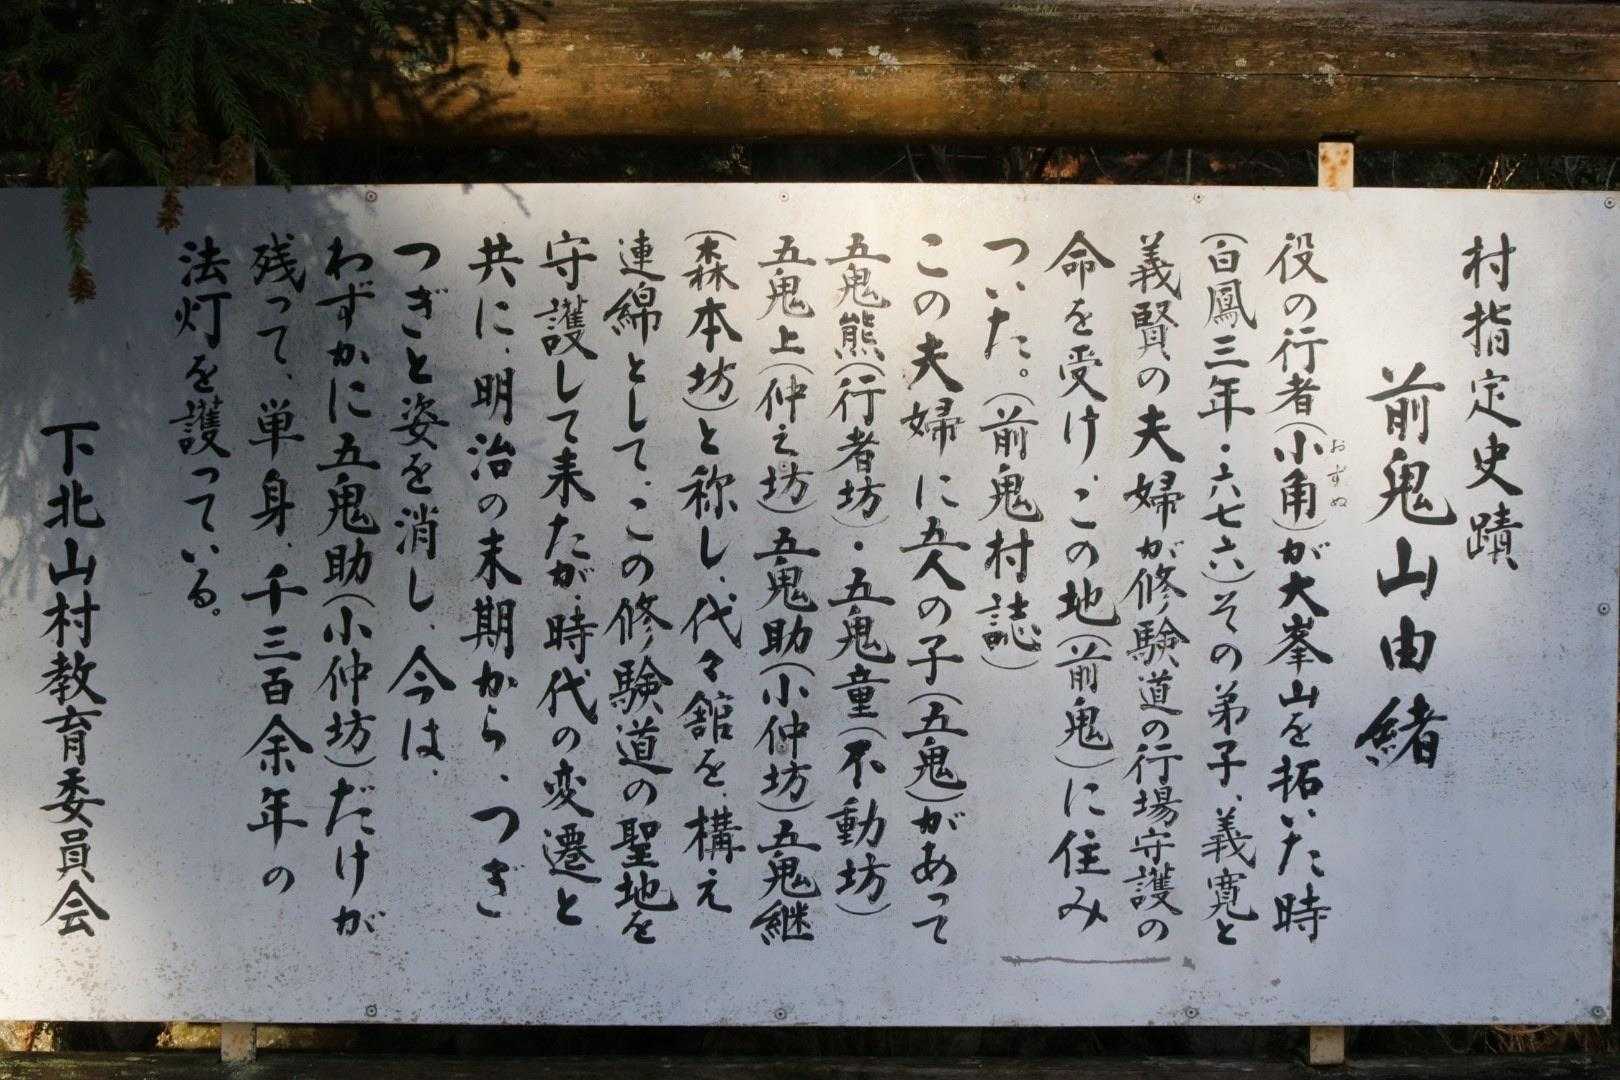 村指定史蹟
前鬼山由緒
役の行者(小角)が大峯山を拓いた時
おずぬ
(白鳳三年・六七六)その弟子、義寛と
義賢の夫婦が修験道の行場守護の
命を受け、この地(前鬼)に住み
ついた。(前鬼村誌)
この夫婦に五人の子(五鬼)があって
五鬼熊(行者坊)・五鬼童(不動坊)
五鬼上(仲之坊)五鬼助(小仲坊)五鬼継
(森本坊)と称し、代々舘を構え
連綿として、この修験道の聖地を
守護して来たが、時代の変遷と
共に、明治の末期から、つぎ
つぎと姿を消し、今は、
わずかに五鬼助(小仲坊)だけが
残って、単身、千三百余年の
法灯を護っている。
下北山村教育委員会